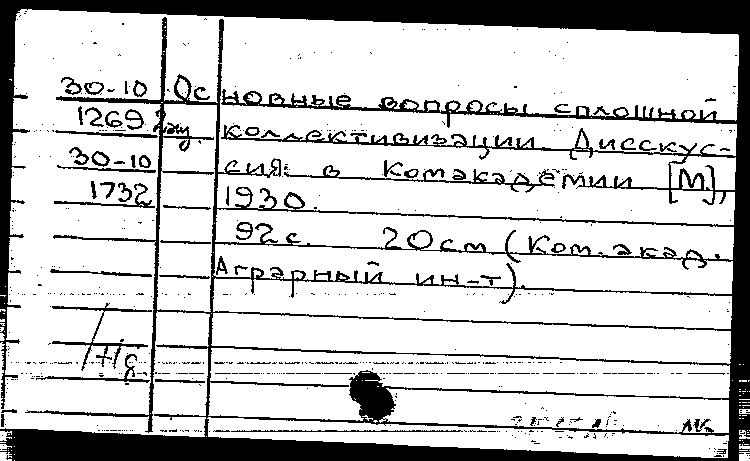 30-10 Основные вопросы сплошной
1269 коллективизации. Дисскус-
30-10 сия в Комакадемии [М],
1732 1930.
92 с. 20 см (Ком. акад.
Аграрный ин-т).